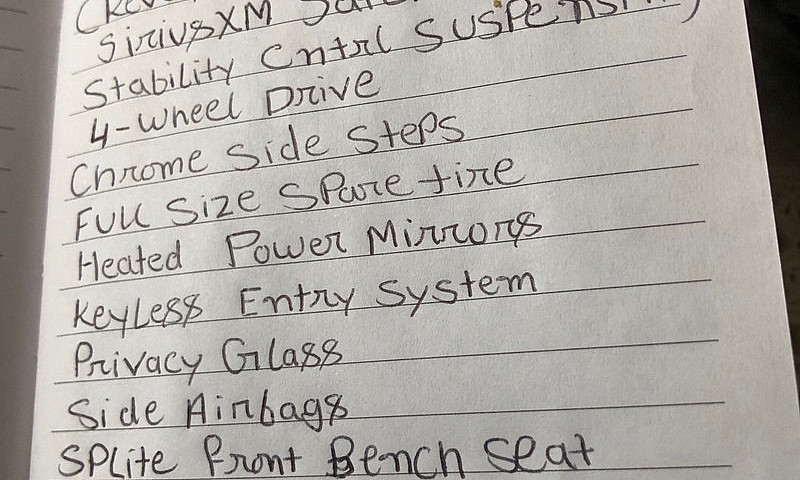 SiriusXM
Stability Cntrl Suspensn
4-Wheel Drive
Chrome Side Steps
Full Size Spare tire
Heated Power Mirrors
Keyless Entry System
Privacy Glass
Side Airbags
Splite front Bench Seat